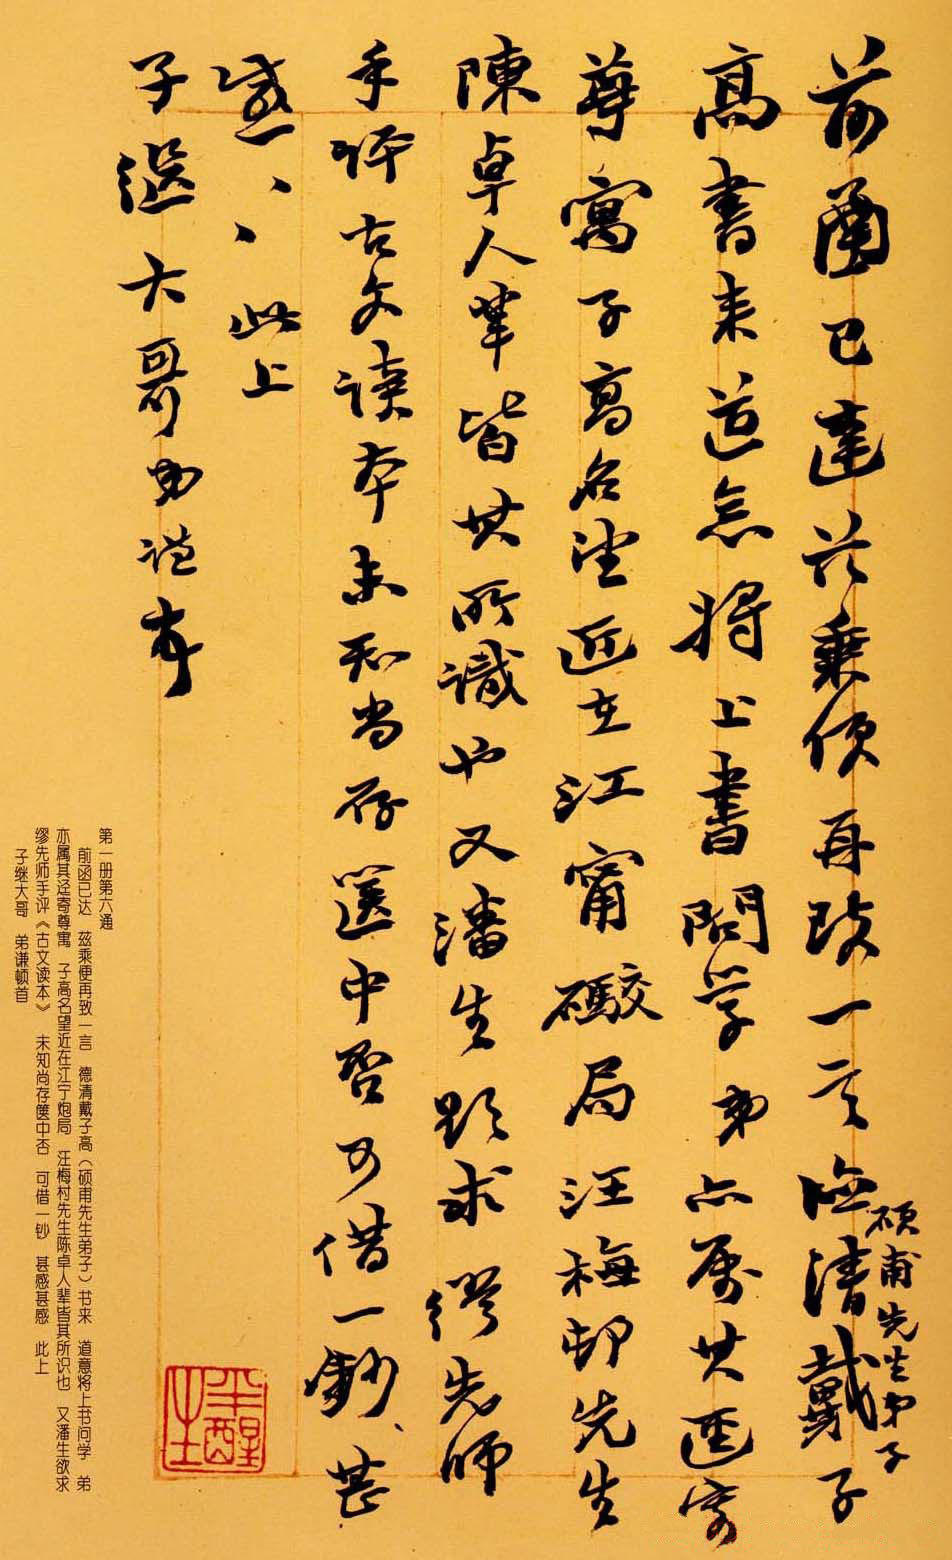 前圅已達茲乘便再致一言德清戴子
碩甫先生弟子
高書來道意將上書問學弟亦屬其逕寄
尊寓子高名望近在江甯礮局汪梅邨先生
陳卓人輩皆其所識也又潘生欲求繆先師
手評古文讀本未知尚存篋中否可借一鈔、甚
感、、此上
子繼大哥弟謙頓首
第一册第六通
前函已达 兹乘便再致一言 德清戴子高（硕甫先生弟子）书来 道意将上书问学 弟
亦属其迳寄尊寓 子高名望近在江宁炮局 汪梅村先生陈卓人辈皆其所识也 又潘生欲求
缪先师手评《古文读本》 未知尚存箧中否 可借一钞 甚感甚感 此上
子继大哥 弟谦顿首